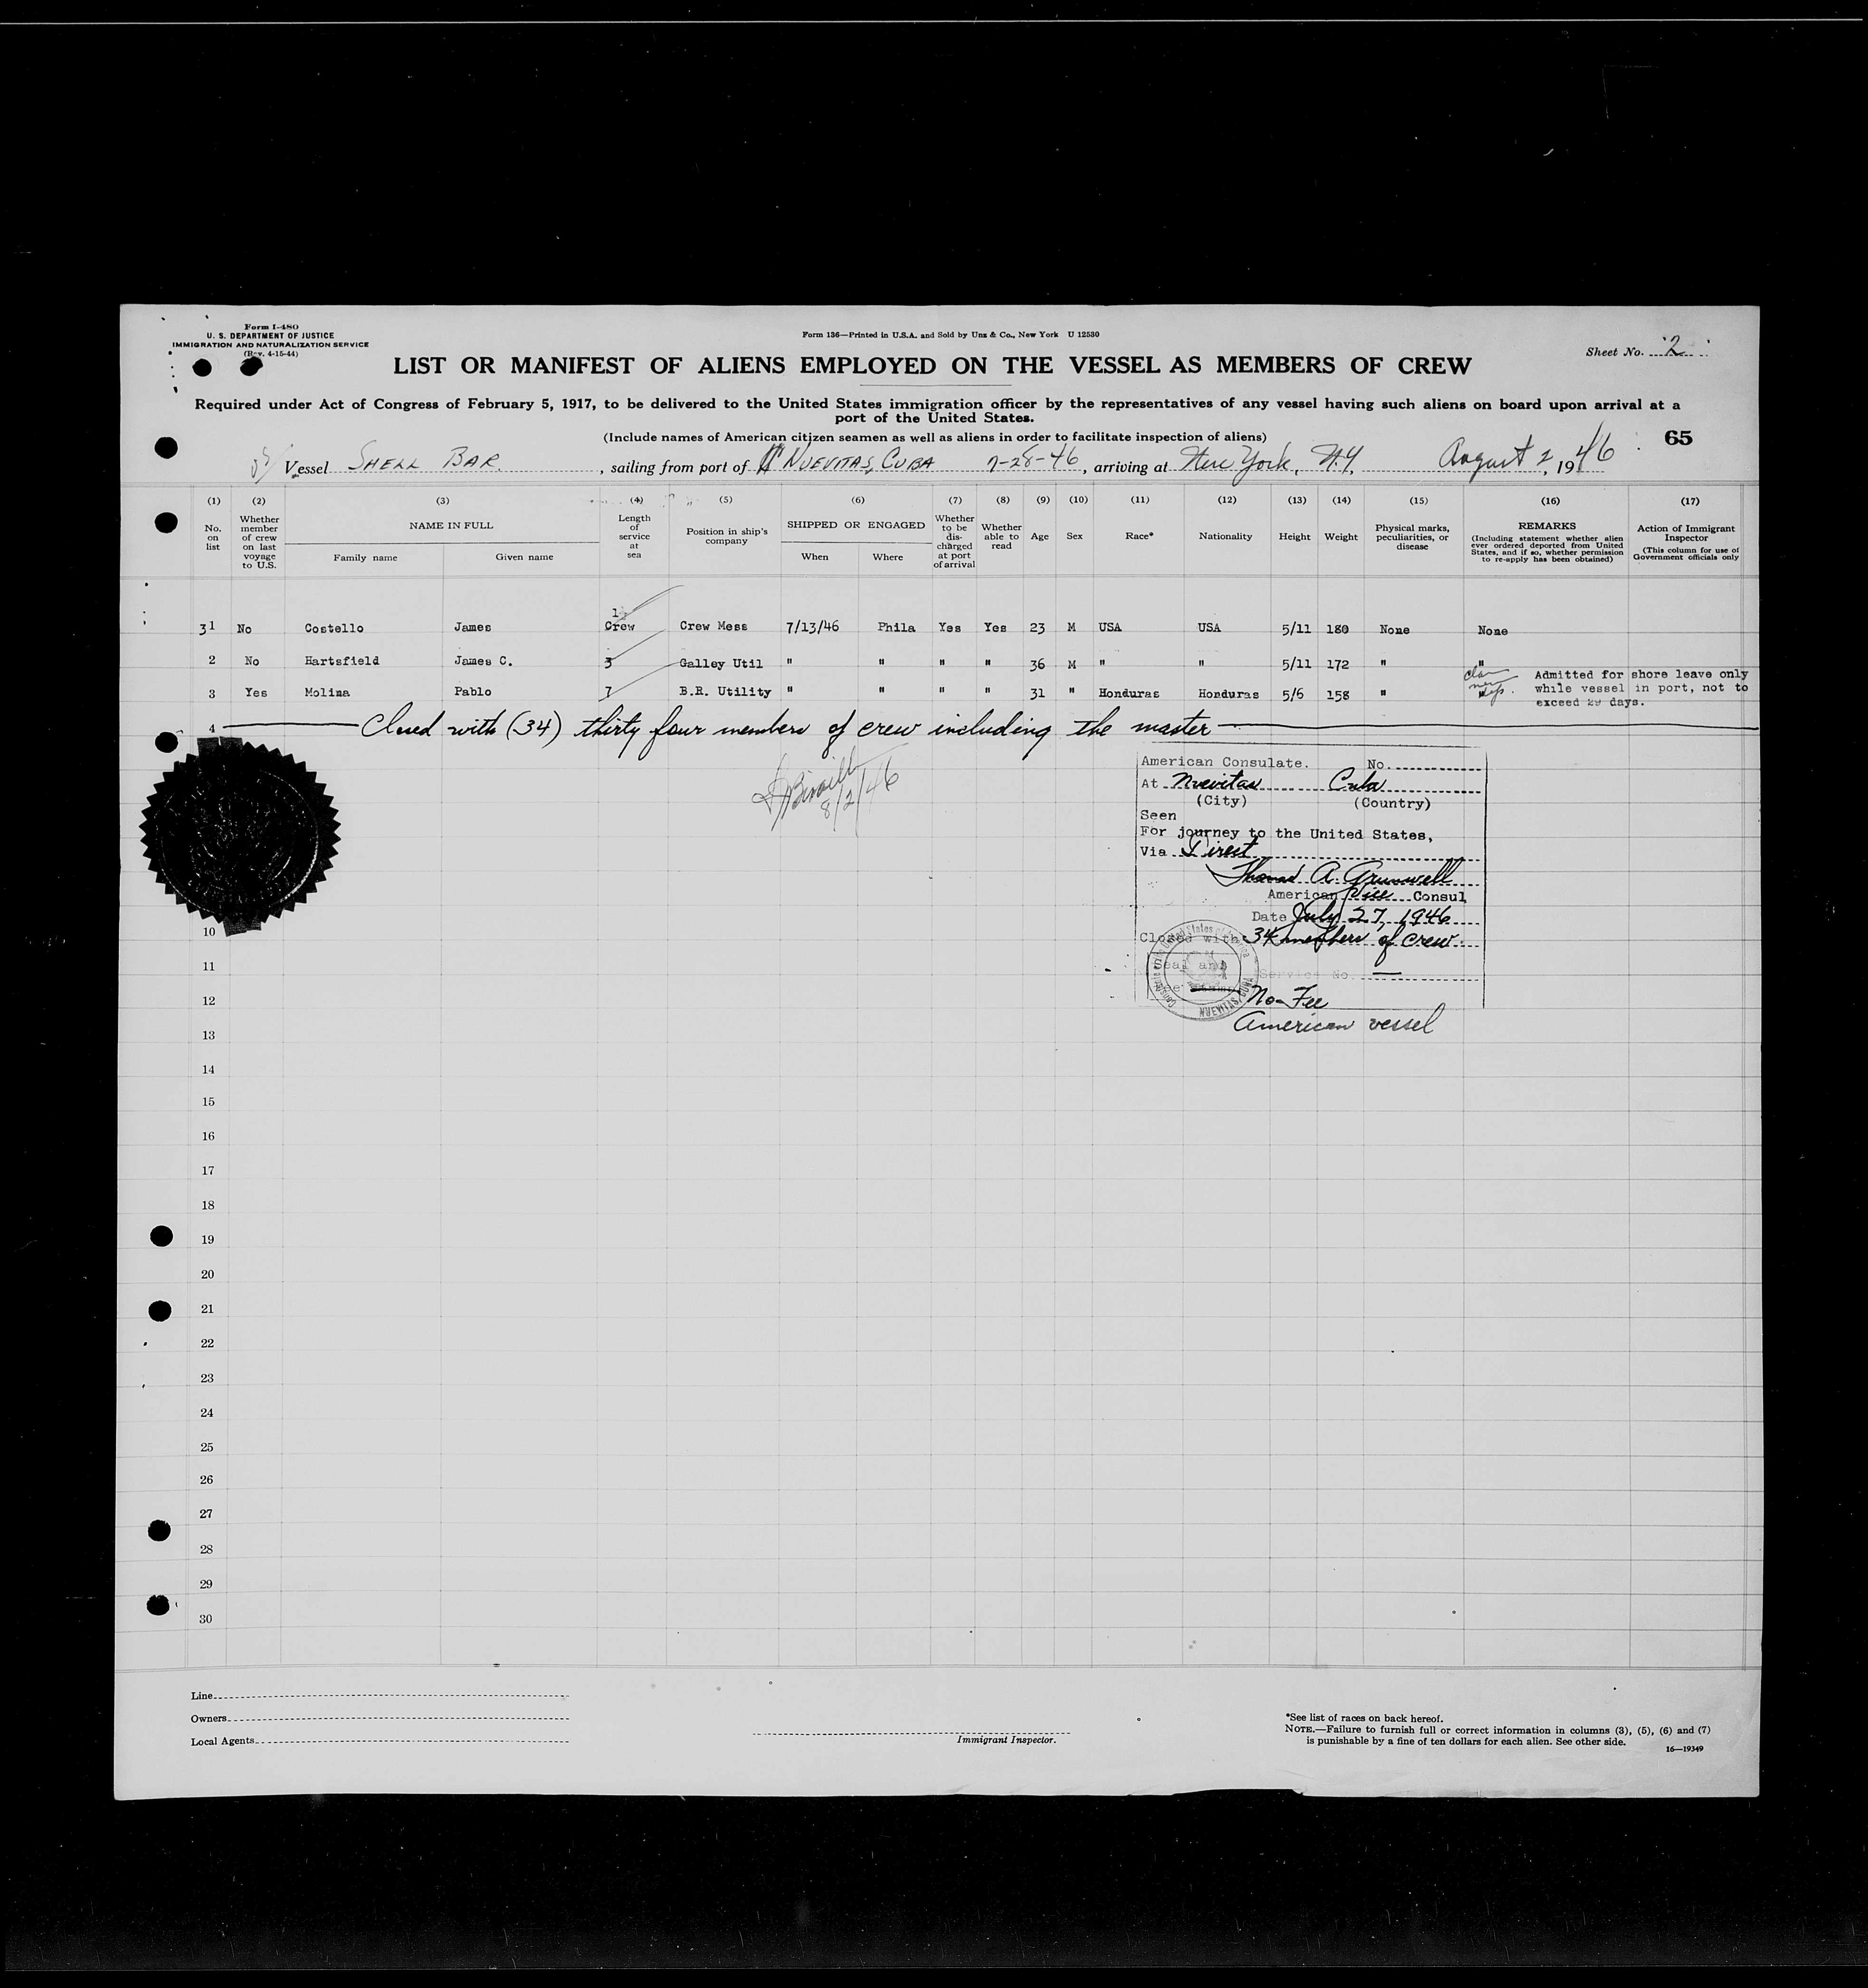 Form I-480
U. S. DEPARTMENT OF JUSTICE
IMMIGRATION AND NATURALIZATION SERVICE
(Rev. 4-15-44)
Form 136—Printed in U.S.A. and Sold by Unz & Co., New York U 12530
Sheet No. 2
LIST OR MANIFEST OF ALIENS EMPLOYED ON THE VESSEL AS MEMBERS OF CREW
Required under Act of Congress of February 5, 1917, to be delivered to the United States immigration officer by the representatives of any vessel having such aliens on board upon arrival at a
port of the United States.
(Include names of American citizen seamen as well as aliens in order to facilitate inspection of aliens)
65
Vessel SHELL BAR, sailing from port of NUEVITAS, CUBA 7-28-46, arriving at New York, N.Y. August 2, 1946
(1) (2) (3) (4) (5) (6) (7) (8) (9) (10) (11) (12) (13) (14) (15) (16) (17)
No. on list
Whether member of crew on last voyage to U.S.
NAME IN FULL
Family name
Given name
Length of service at sea
Position in ship's company
SHIPPED OR ENGAGED
When
Where
Whether to be discharged at port of arrival
Whether able to read
Age
Sex
Race*
Nationality
Height
Weight
Physical marks, peculiarities, or disease
REMARKS
(Including statement whether alien ever ordered deported from United States, and if so, whether permission to re-apply has been obtained)
Action of Immigrant Inspector
(This column for use of Government officials only
31 No Costello James 1 Crew Crew Mess 7/13/46 Phila Yes Yes 23 M USA USA 5/11 180 None None
2 No Hartsfield James C. 3 Galley Util " " " " 36 M " " 5/11 172 " "
3 Yes Molina Pablo 7 B.R. Utility " " " " 31 " Honduras Honduras 5/6 158 " "
Admitted for shore leave only
while vessel in port, not to
exceed 29 days.
4 Closed with (34) thirty four members of crew including the master
8/2/46
American Consulate. No.
At Nuevitas Cuba
(City) (Country)
Seen
For journey to the United States,
Via Direct
Thomas A. Grunwell
American Vice Consul
Date July 27, 1946
Closed with 34 members of crew.
Seal and Service No. —
Fee Stamp No Fee
American vessel
NUEVITAS, CUBA
10
11
12
13
14
15
16
17
18
19
20
21
22
23
24
25
26
27
28
29
30
Line
Owners
Local Agents
Immigrant Inspector.
*See list of races on back hereof.
NOTE.—Failure to furnish full or correct information in columns (3), (5), (6) and (7)
is punishable by a fine of ten dollars for each alien. See other side.
16—19349